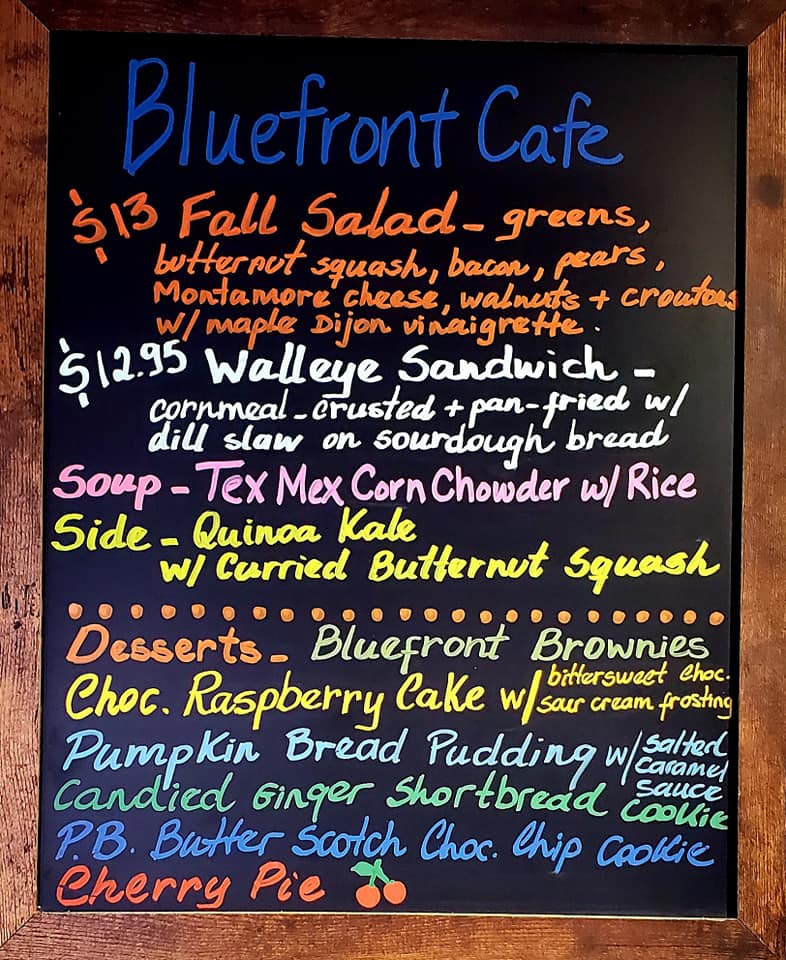 Bluefront Cafe
$13 Fall Salad - greens,
butternut squash, bacon, pears,
Montamore cheese, walnuts + croutons
w/ maple Dijon vinaigrette.
$12.95 Walleye Sandwich -
cornmeal-crusted + pan-fried w/
dill slaw on sourdough bread
Soup - Tex Mex Corn Chowder w/ Rice
Side - Quinoa Kale
w/ Curried Butternut Squash
Desserts - Bluefront Brownies
Choc. Raspberry Cake w/ bittersweet choc.
sour cream frosting
Pumpkin Bread Pudding w/ salted
caramel
sauce
Candied Ginger Shortbread Cookie
P.B. Butter Scotch Choc. Chip Cookie
Cherry Pie